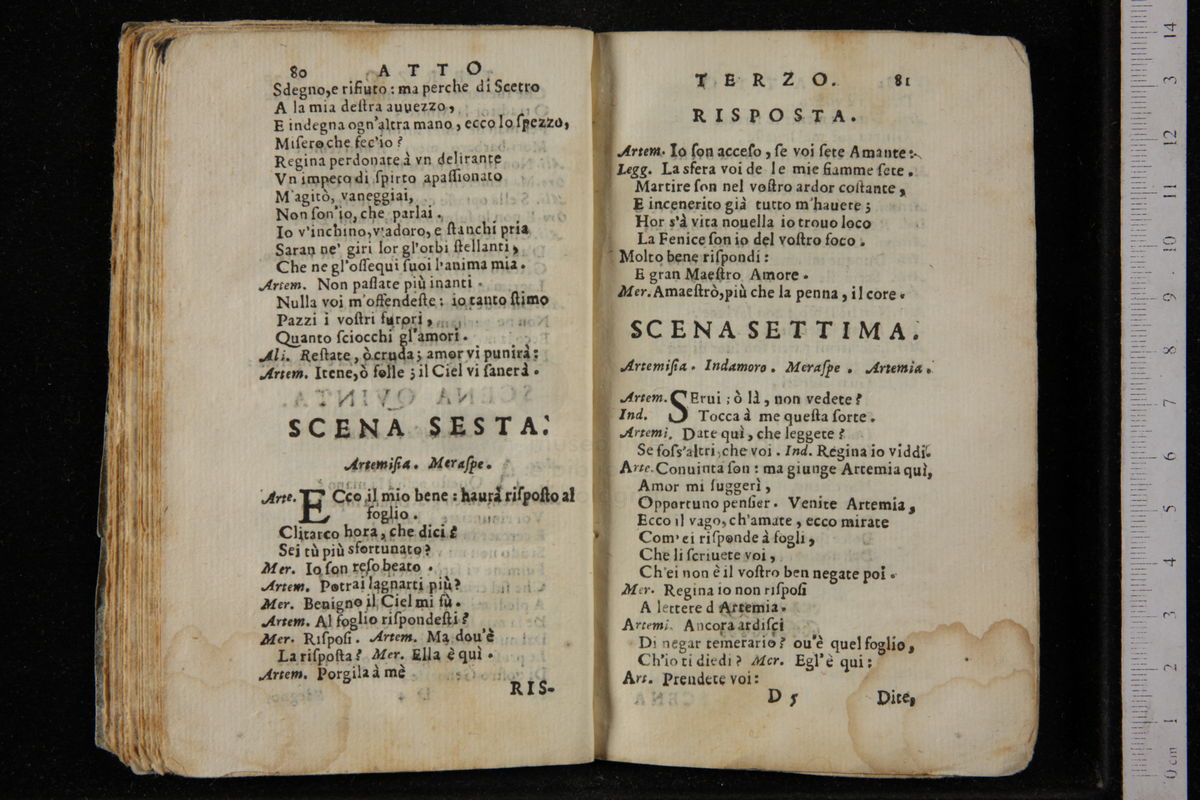 80 ATTO
Sdegno,e rifiuto : ma perche di Scetro
A la mia deſtra auuezzo ,
E indegna ogn'altra mano , ecco lo ſpezzo,
Miſero che fec'io ?
Regina perdonate à vn delirante
Vn impeto di ſpirto apaſſionato
M'agitò, vaneggiai,
Non ſon'io, che parlai .
Io v'inchino,v'adoro, e ſtanchi pria
Saran ne' giri lor gl'orbi ſtellanti,
Che ne gl'oſſequi ſuoi l'anima mia .
Artem. Non paſſate più inanti .
Nulla voi m'offendeſte : io tanto ſtimo
Pazzi i voſtri furori ,
Quanto ſciocchi gl'amori .
Ali. Reſtate , ò cruda ; amor vi punirà :
Artem. Itene,ò folle ; il Ciel vi ſanerà .
SCENA SESTA.
Artemiſia . Meraſpe .
Arte. ECco il mio bene : haurà riſpoſto al
foglio .
Clitarco hora, che dici ?
Sei tù più sfortunato ?
Mer. Io ſon reſo beato .
Artem. Potrai lagnarti più?
Mer. Benigno il Ciel mi fù .
Artem. Al foglio riſpondeſti ?
Mer. Riſpoſi . Artem. Ma dou'è
La riſpoſta ? Mer. Ella è quì .
Artem. Porgila à mè
RIS-
TERZO. 81
RISPOSTA.
Artem. Io ſon acceſo , ſe voi ſete Amante :
Legg. La sfera voi de le mie fiamme ſete .
Martire ſon nel voſtro ardor coſtante ,
E incenerito già tutto m'hauete ;
Hor s'à vita nouella io trouo loco
La Fenice ſon io del voſtro foco .
Molto bene riſpondi :
E gran Maeſtro Amore .
Mer. Amaeſtrò,più che la penna , il core .
SCENA SETTIMA.
Artemiſia . Indamoro . Meraſpe . Artemia .
Artem. SErui ; ò là , non vedete ?
Ind. Tocca à me queſta ſorte .
Artemi. Date quì , che leggete ?
Se foſs'altri, che voi . Ind. Regina io viddi.
Arte. Conuinta ſon : ma giunge Artemia quì,
Amor mi ſuggerì ,
Opportuno penſier . Venite Artemia ,
Ecco il vago, ch'amate , ecco mirate
Com' ei riſponde à fogli ,
Che li ſcriuete voi ,
Ch'ei non è il voſtro ben negate poi .
Mer. Regina io non riſpoſi
A lettere d Artemia .
Artemi. Ancora ardiſci
Di negar temerario ? ou'è quel foglio ,
Ch'io ti diedi ? Mer. Egl'è qui :
Art. Prendete voi :
D 5 Dite,